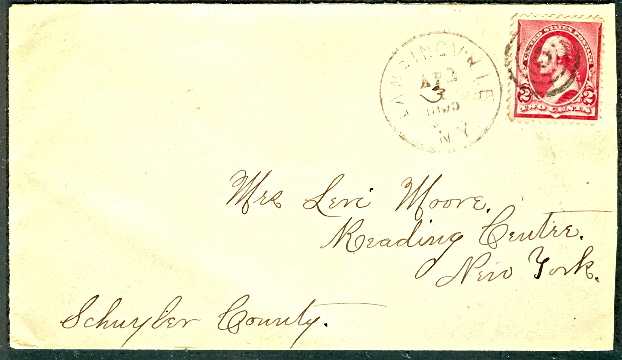 LANSINGVILLE
APR
3
N.Y.
UNITED STATES POSTAGE
2 2
TWO CENTS
Mrs Levi Moore.
Reading Centre.
New York.
Schuyler County.